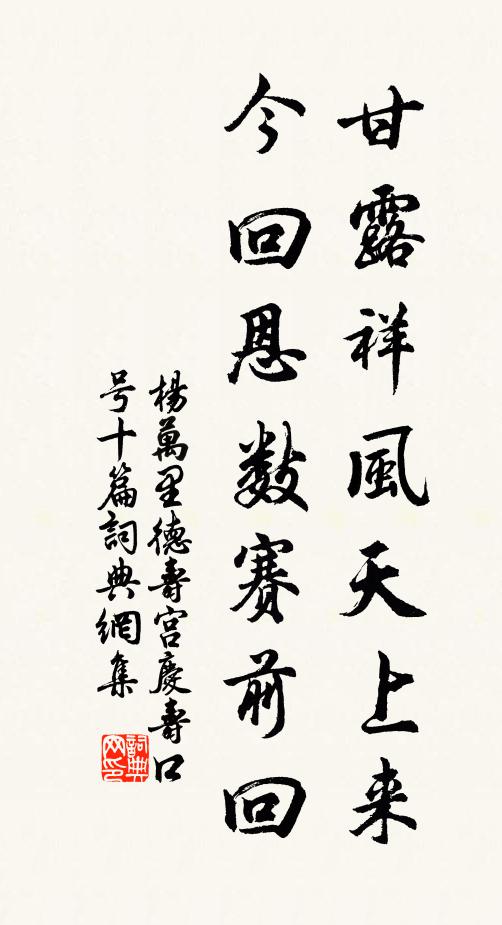 甘露祥風天上来
今回恩数賽前回
楊萬里德壽宮慶壽口
号十篇詞典網集
詞典网印